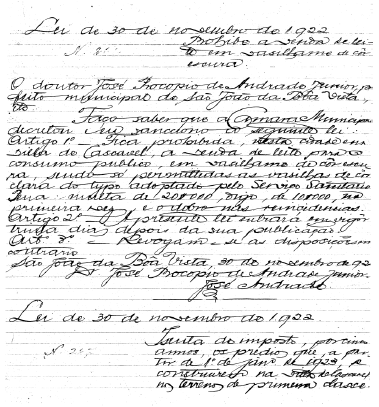 Lei de 30 de novembro de 1922
Nº 21
Prohibe a venda de lei-
te em vasilhame de co-
O doutor José Procopio de Andrade Junior, pre-
feito municipal de São João da Bôa Vista,
Faço saber que a Camara Municipal
decretou e eu sancciono a seguinte lei:
Artigo 1º - Fica prohibida, nesta cidade e na
villa de Cascavel, a venda de leite para o
consumo publico, em vasilhame de
sendo só permittidas as vasilhas de
do typo adoptado pelo Serviço Sanitario
multa de 20$000, na
primeira vez, e o dobro nas reincidencias.
Artigo 2º - A presente lei entrará em vigor
trinta dias depois da sua publicação
Art. 3º - Revogam-se as disposições em
contrario.
São João da Bôa Vista, 30 de novembro de 922
José Procopio de Andrade Junior.
José Andrade
Lei de 30 de novembro de 1922
Isenta de imposto, por cinco
annos, os predios que, a par-
tir de 1º de janº de 1923, se
construirem na de Cascavel
no terreno de primeira classe.